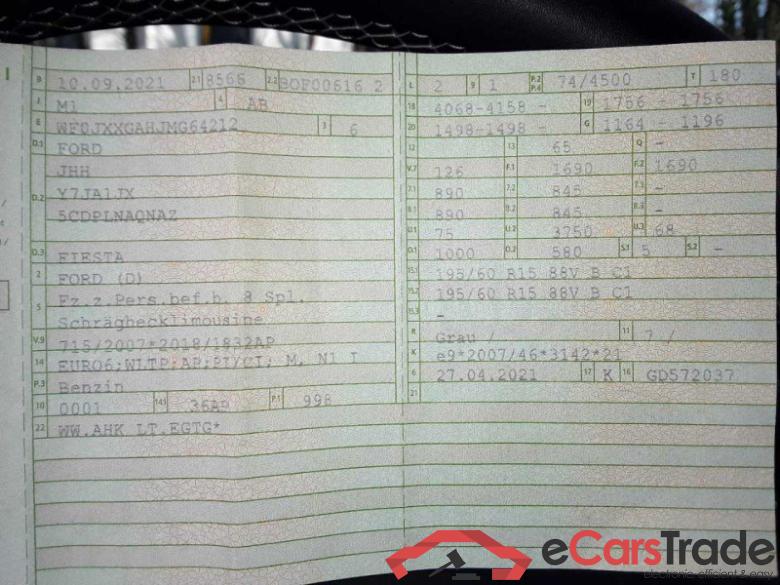 B 10.09.2021 2.1 8566 2.2 BOF00616 2
J M1 4 AB
E WF0JXXGAHJMG64212 3 6
D.1 FORD
JHH
D.2 Y7JA1JX
5CDPLNAQNAZ
D.3 FIESTA
2 FORD (D)
5 Fz.z.Pers.bef.b. 8 Spl.
Schräghecklimousine
V.9 715/2007*2018/1832AP
14 EURO6;WLTP;AP;PI/CI; M, N1 I
P.3 Benzin
10 0001 14.1 36AP P.1 998
22 WW.AHK LT.EGTG*
L 2 9 1 P.2 P.4 74/4500 T 180
18 4068-4158 - 19 1756 - 1756
20 1498-1498 - G 1164 - 1196
12 13 65 Q -
V.7 126 F.1 1690 F.2 1690
7.1 890 7.2 845 7.3 -
8.1 890 8.2 845 8.3 -
U.1 75 U.2 3750 U.3 68
O.1 1000 O.2 580 S.1 5 S.2 -
15.1 195/60 R15 88V B C1
15.2 195/60 R15 88V B C1
15.3 -
R Grau / 11 7 /
K e9*2007/46*3142*21
6 27.04.2021 17 K 16 GD572037
21
eCarsTrade
electronic, efficient & easy